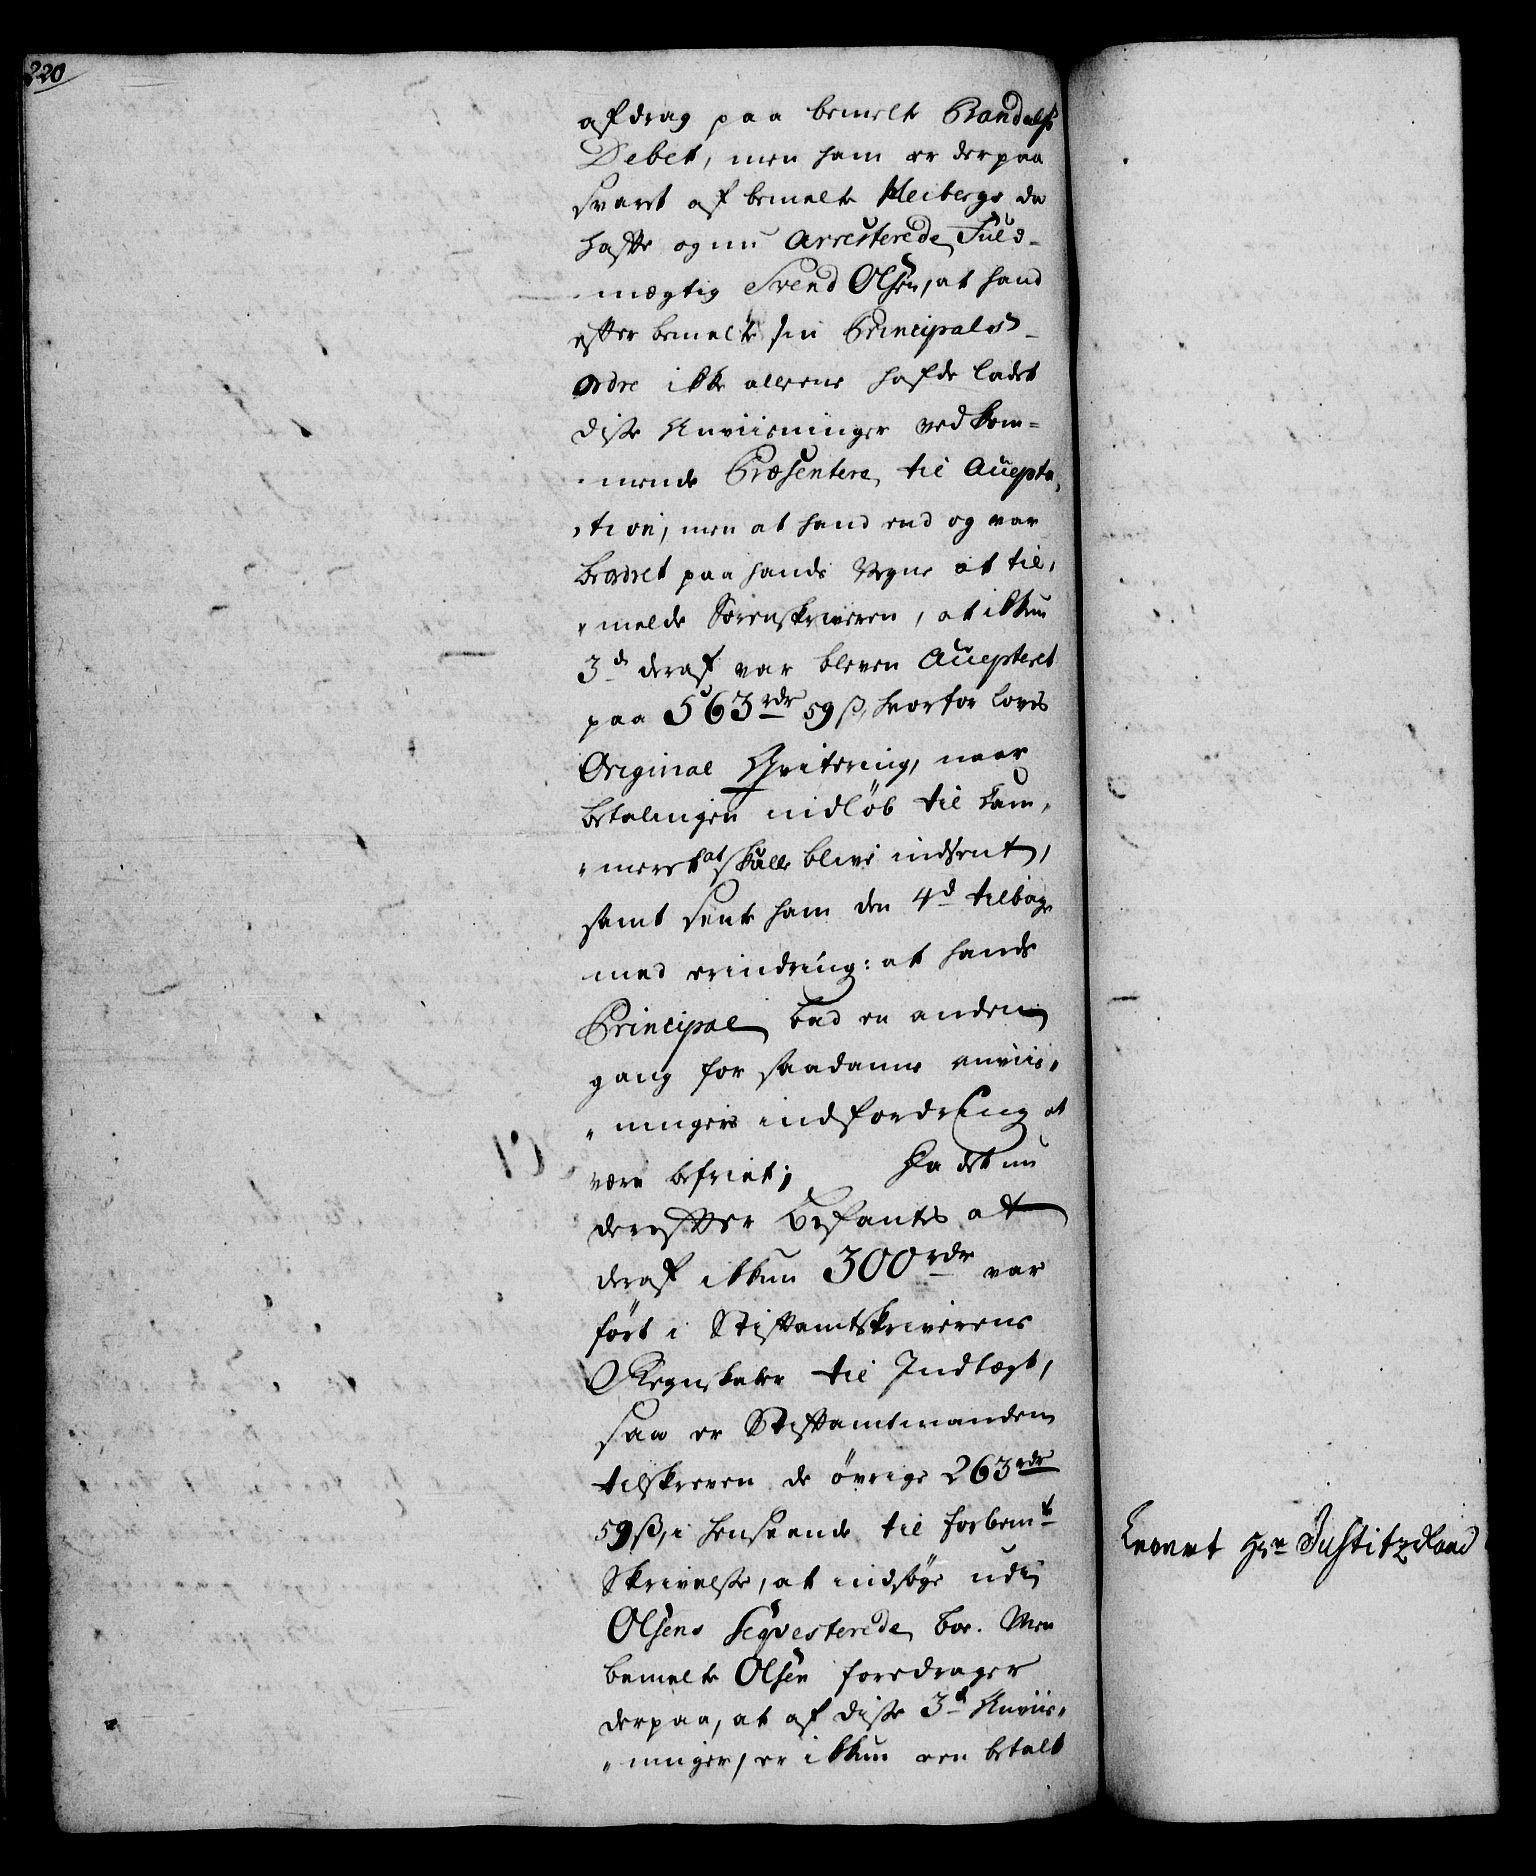 220
afdrag paa bemelte Randulfs
Debet, men ham er derpaa
svaret af bemelte Heibergs da
hafte og nu Arresterede Fuld-
-mægtig Svend Olsen, at hand
efter bemelte sin Principals
Ordre ikke alleene hafde ladet
disse Anviisninger vedkom-
-mende Præsentere til Accepta-
-tion, men at hand end og var
beordret paa hands Vegne at til-
-melde Sorenskriveren, at ikkun
3de deraf var bleven Accepteret
paa 563 rdr 59 ß, hvorfor loves
Original Qvitering, naar
betalingen indløb til Cam-
-meret at skulle blive indsent,
samt sente ham den 4de tilbage
med erindring: at hands
Principal bad en anden
gang for saadanne anviis-
-ningers indfordring at
være befriet; Da det nu
derefter befantes at
deraf ikkun 300 rdr var
ført i Stiftamtskriverens
Regnskaber til Indtægt,
saa er Stiftamtmanden
tilskreven de øvrige 263 rdr
59 ß, i henseende til forbemte
Skrivelse, at indsøge udi
Olsens Seqvesterede boe. Men
bemelte Olsen foredrager
derpaa, at af disse 3de Anviis-
-ninger, er ikkun een betalt
Levert Hr. Justitz Raad